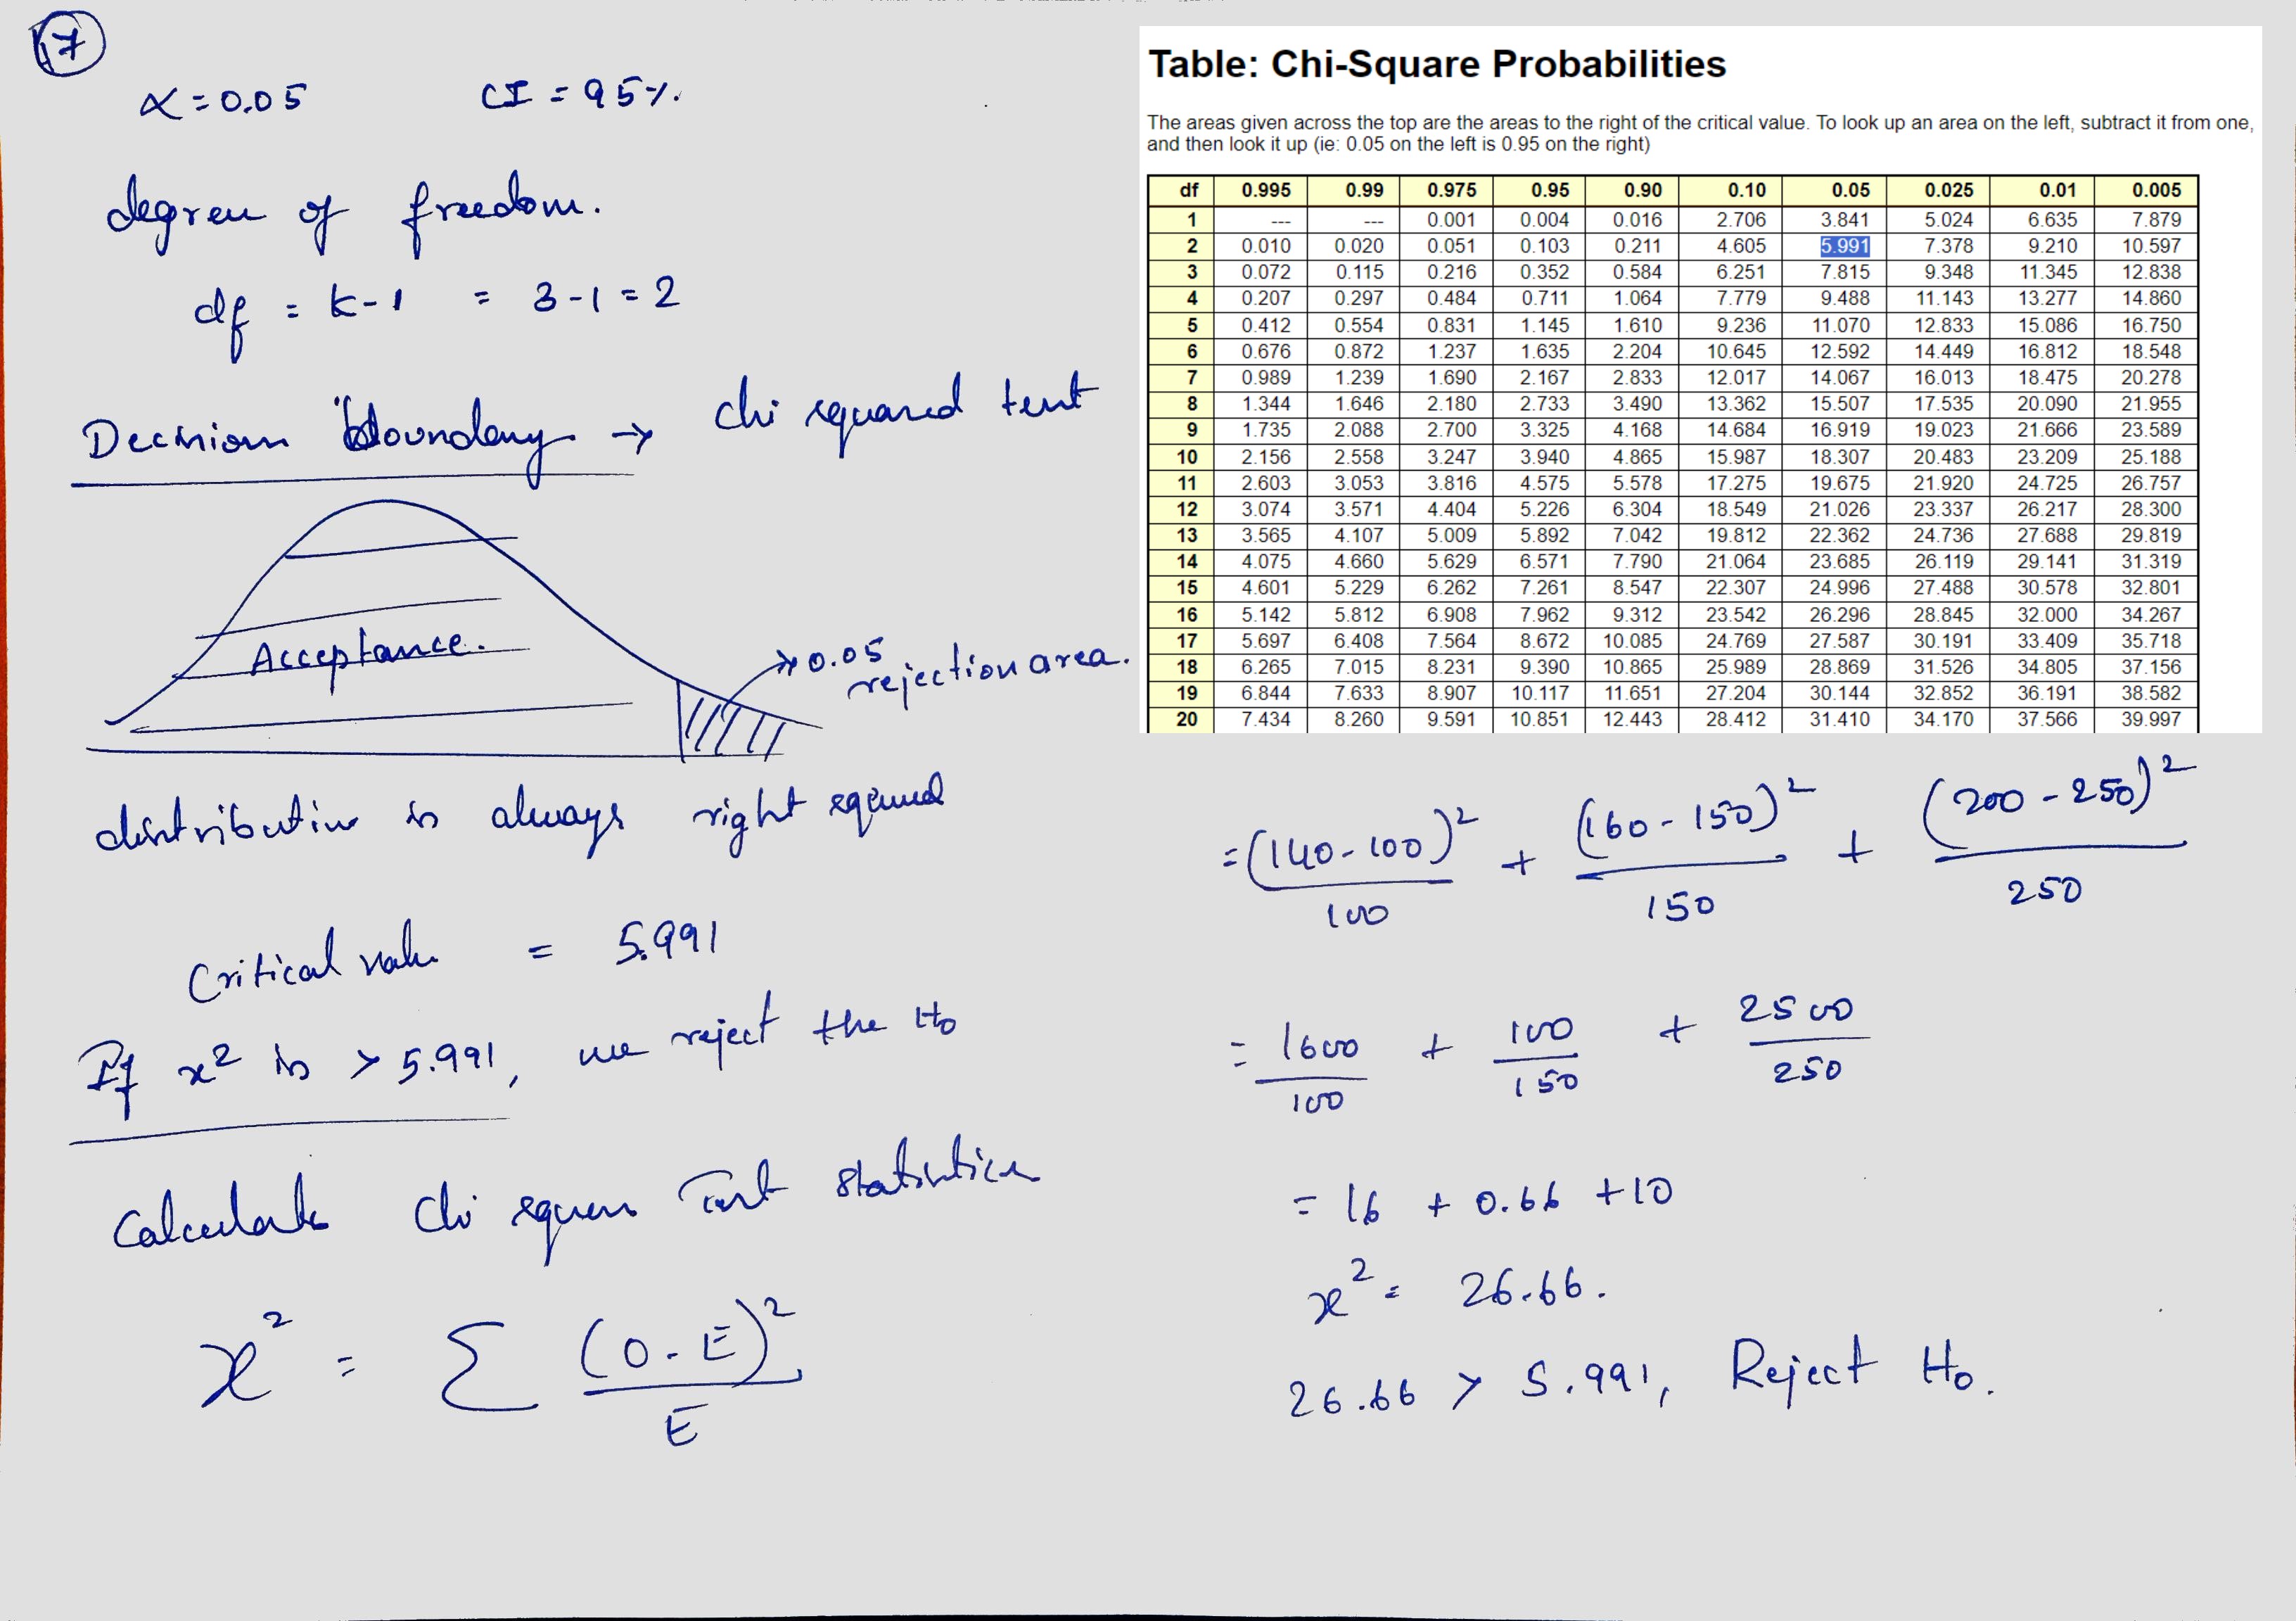 17
α = 0.05 CI = 95%.
degree of freedom.
df = k-1 = 3-1 = 2
Decision boundary → chi squared test
Acceptance.
→ 0.05
rejection area.
distribution is always right
Critical value = 5.991
If x² is > 5.991, we reject the H₀
Calculate chi square Test statistics
x² = Σ (O-E)² / E
Table: Chi-Square Probabilities
The areas given across the top are the areas to the right of the critical value. To look up an area on the left, subtract it from one,
and then look it up (ie: 0.05 on the left is 0.95 on the right)
df 0.995 0.99 0.975 0.95 0.90 0.10 0.05 0.025 0.01 0.005
1 --- --- 0.001 0.004 0.016 2.706 3.841 5.024 6.635 7.879
2 0.010 0.020 0.051 0.103 0.211 4.605 5.991 7.378 9.210 10.597
3 0.072 0.115 0.216 0.352 0.584 6.251 7.815 9.348 11.345 12.838
4 0.207 0.297 0.484 0.711 1.064 7.779 9.488 11.143 13.277 14.860
5 0.412 0.554 0.831 1.145 1.610 9.236 11.070 12.833 15.086 16.750
6 0.676 0.872 1.237 1.635 2.204 10.645 12.592 14.449 16.812 18.548
7 0.989 1.239 1.690 2.167 2.833 12.017 14.067 16.013 18.475 20.278
8 1.344 1.646 2.180 2.733 3.490 13.362 15.507 17.535 20.090 21.955
9 1.735 2.088 2.700 3.325 4.168 14.684 16.919 19.023 21.666 23.589
10 2.156 2.558 3.247 3.940 4.865 15.987 18.307 20.483 23.209 25.188
11 2.603 3.053 3.816 4.575 5.578 17.275 19.675 21.920 24.725 26.757
12 3.074 3.571 4.404 5.226 6.304 18.549 21.026 23.337 26.217 28.300
13 3.565 4.107 5.009 5.892 7.042 19.812 22.362 24.736 27.688 29.819
14 4.075 4.660 5.629 6.571 7.790 21.064 23.685 26.119 29.141 31.319
15 4.601 5.229 6.262 7.261 8.547 22.307 24.996 27.488 30.578 32.801
16 5.142 5.812 6.908 7.962 9.312 23.542 26.296 28.845 32.000 34.267
17 5.697 6.408 7.564 8.672 10.085 24.769 27.587 30.191 33.409 35.718
18 6.265 7.015 8.231 9.390 10.865 25.989 28.869 31.526 34.805 37.156
19 6.844 7.633 8.907 10.117 11.651 27.204 30.144 32.852 36.191 38.582
20 7.434 8.260 9.591 10.851 12.443 28.412 31.410 34.170 37.566 39.997
= (140-100)² / 100 + (160-150)² / 150 + (200-250)² / 250
= 1600 / 100 + 100 / 150 + 2500 / 250
= 16 + 0.66 + 10
x² = 26.66.
26.66 > 5.991, Reject H₀.